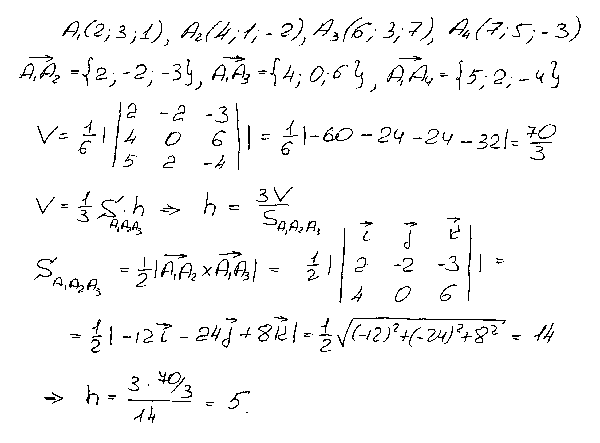 A₁(2; 3; 1), A₂(4; 1; -2), A₃(6; 3; 7), A₄(7; 5; -3)
A₁A₂ = {2; -2; -3}, A₁A₃ = {4; 0; 6}, A₁A₄ = {5; 2; -4}
V = 1/6 | |2 -2 -3| | = 1/6 |-60 - 24 - 24 - 32| = 70/3
|4 0 6|
|5 2 -4|
V = 1/3 S_A₁A₂A₃ · h ⇒ h = 3V / S_A₁A₂A₃
S_A₁A₂A₃ = 1/2 |A₁A₂ × A₁A₃| = 1/2 | |i j k| | =
|2 -2 -3|
|4 0 6|
= 1/2 |-12i - 24j + 8k| = 1/2 √((-12)² + (-24)² + 8²) = 14
⇒ h = (3 · 70/3) / 14 = 5.